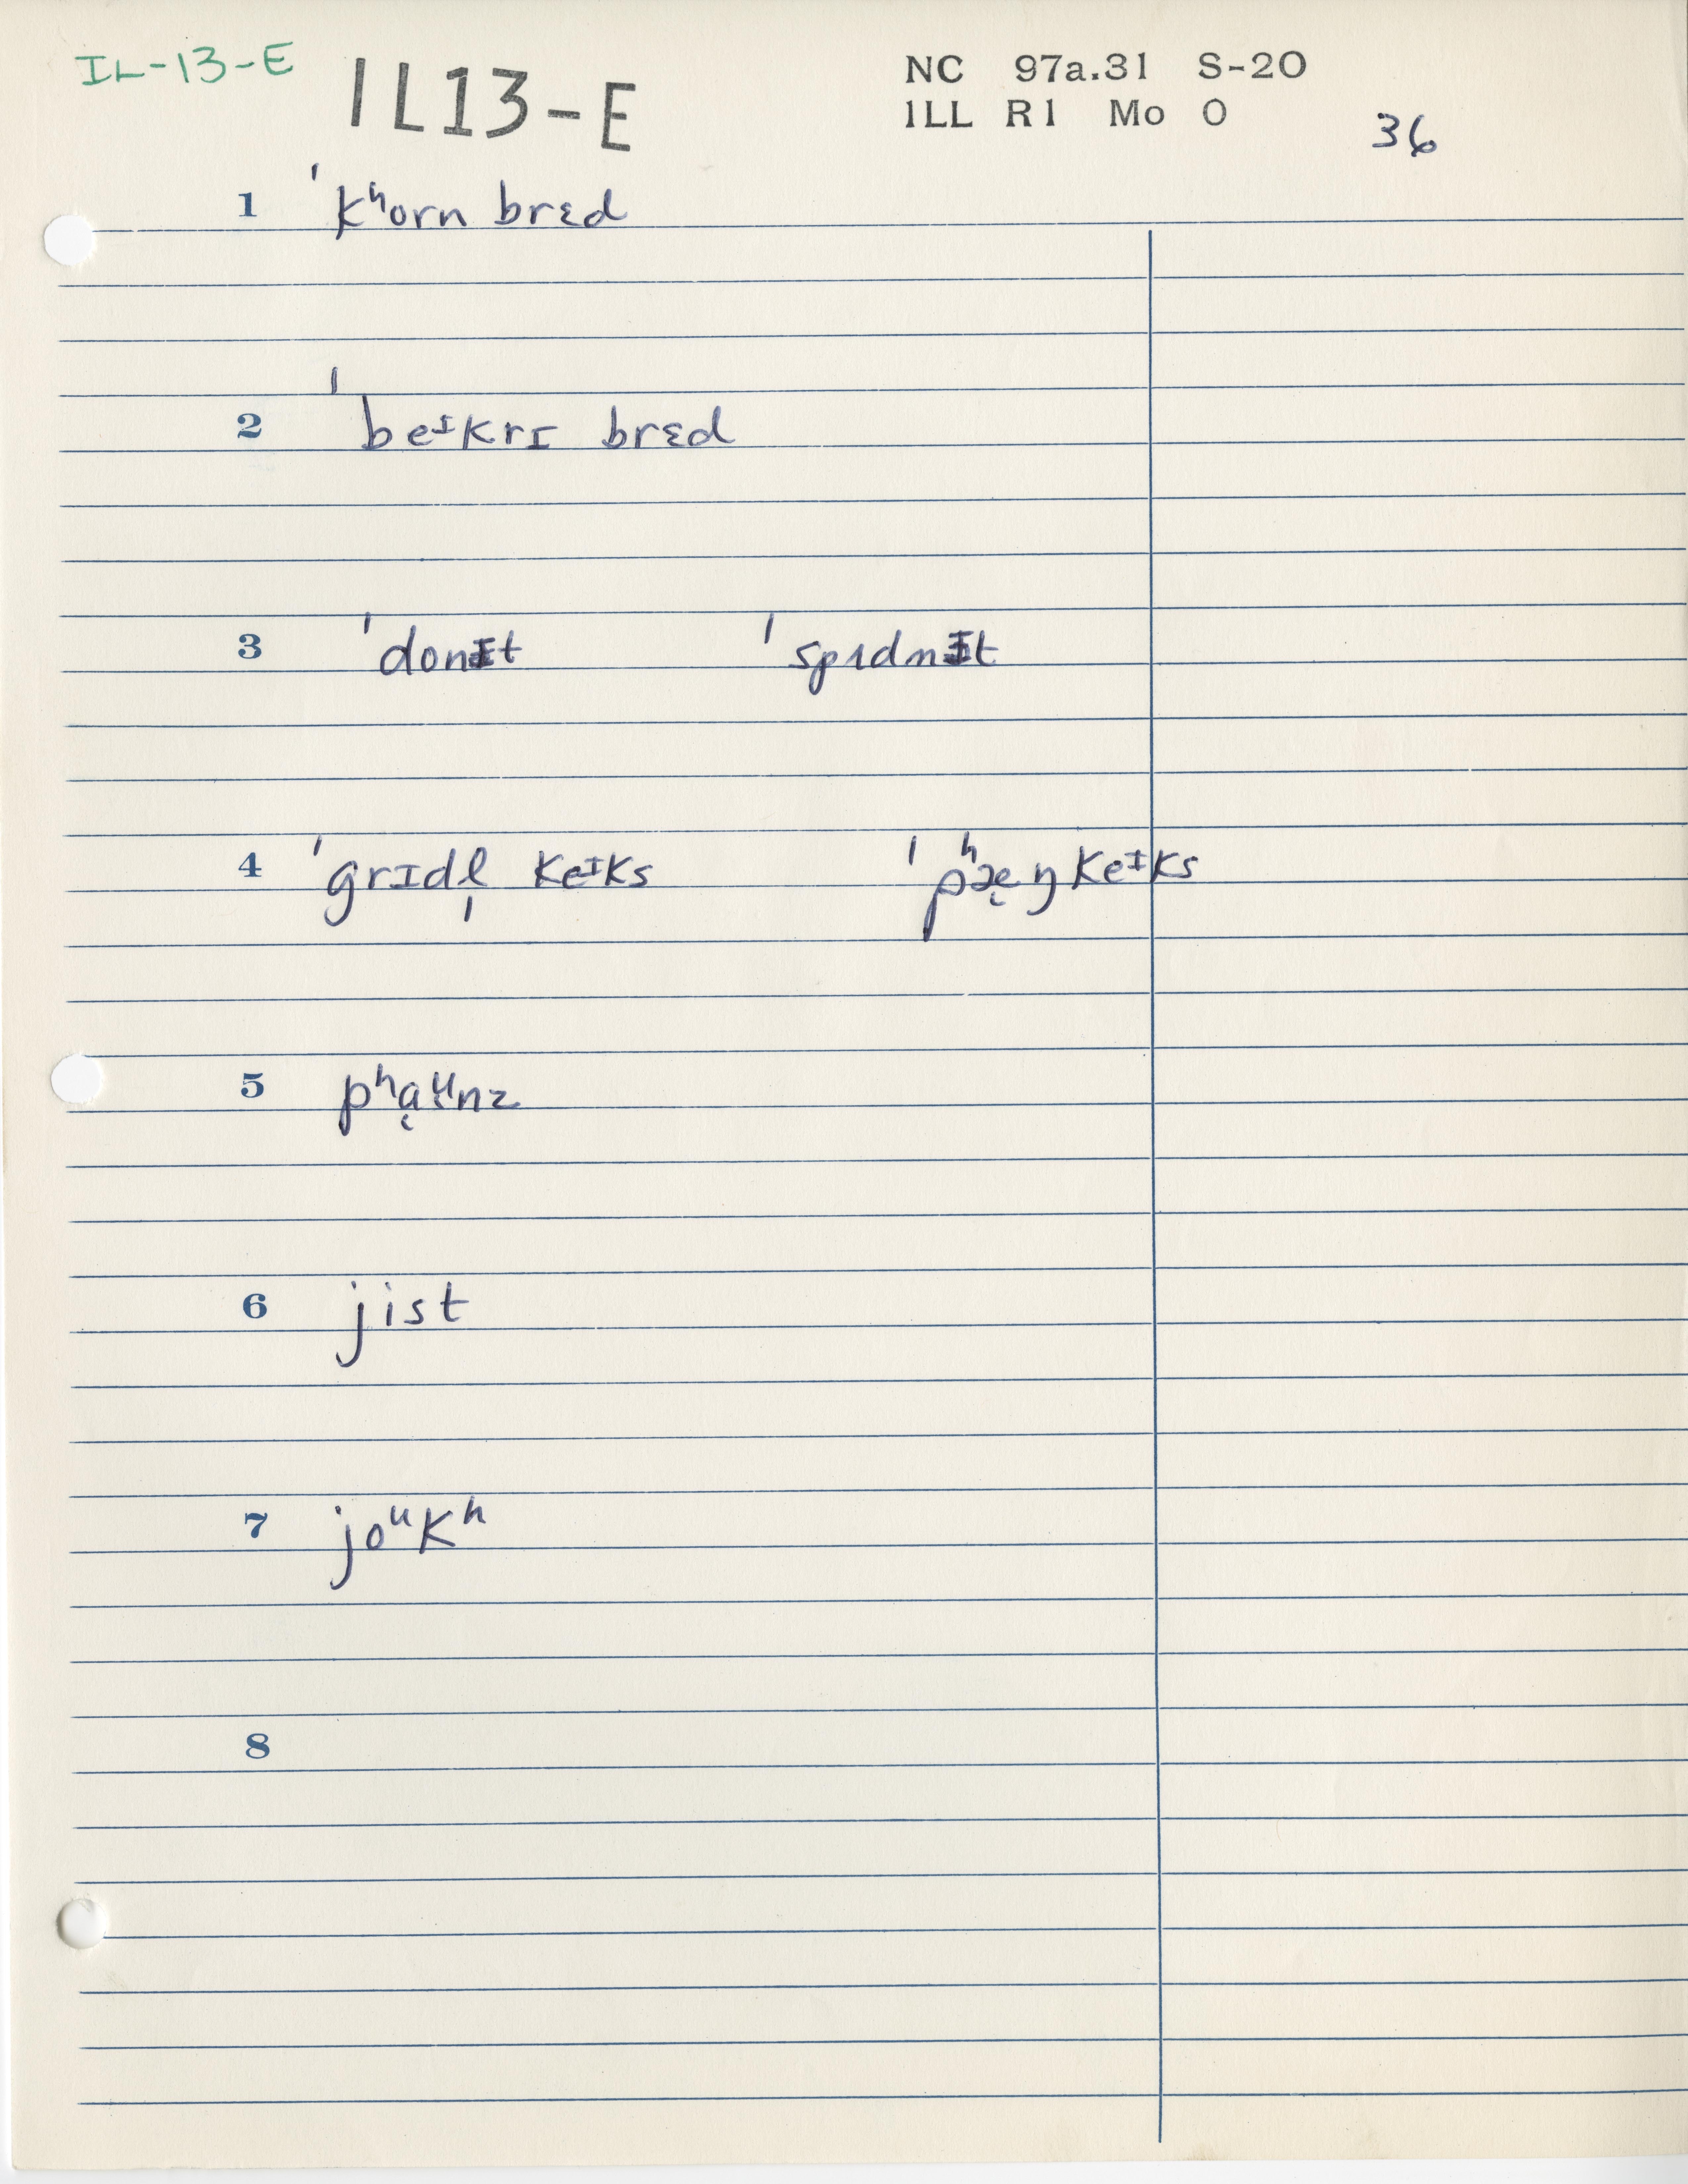 IL-13-E IL13-E NC 97a.31 S-20
ILL R1 Mo O
36
1 ˈkʰorn brɛd
2 ˈbeᶦkrɪ brɛd
3 ˈdonɪt ˈspɪdnɪt
4 ˈgrɪdl̩ keᶦks ˈpʰæ̨ŋkeᶦks
5 pʰąᶶnz
6 jist
7 joᵘkʰ
8